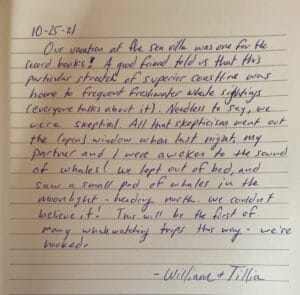 10-25-21
Our vacation at the sea villa was one for the
record books! A good friend told us that this
particular stretch of superior coastline was
home to frequent freshwater whale sightings
(everyone talks about it). Needless to say, we
were skeptical. All that skepticism went out
the (open) window when last night, my
partner and I were awoken to the sound
of whales! We lept out of bed, and
saw a small pod of whales in the
moonlight - heading north. We couldn't
believe it! This will be the first of
many whalewatching trips this way - we're
hooked.
- William + Tillia